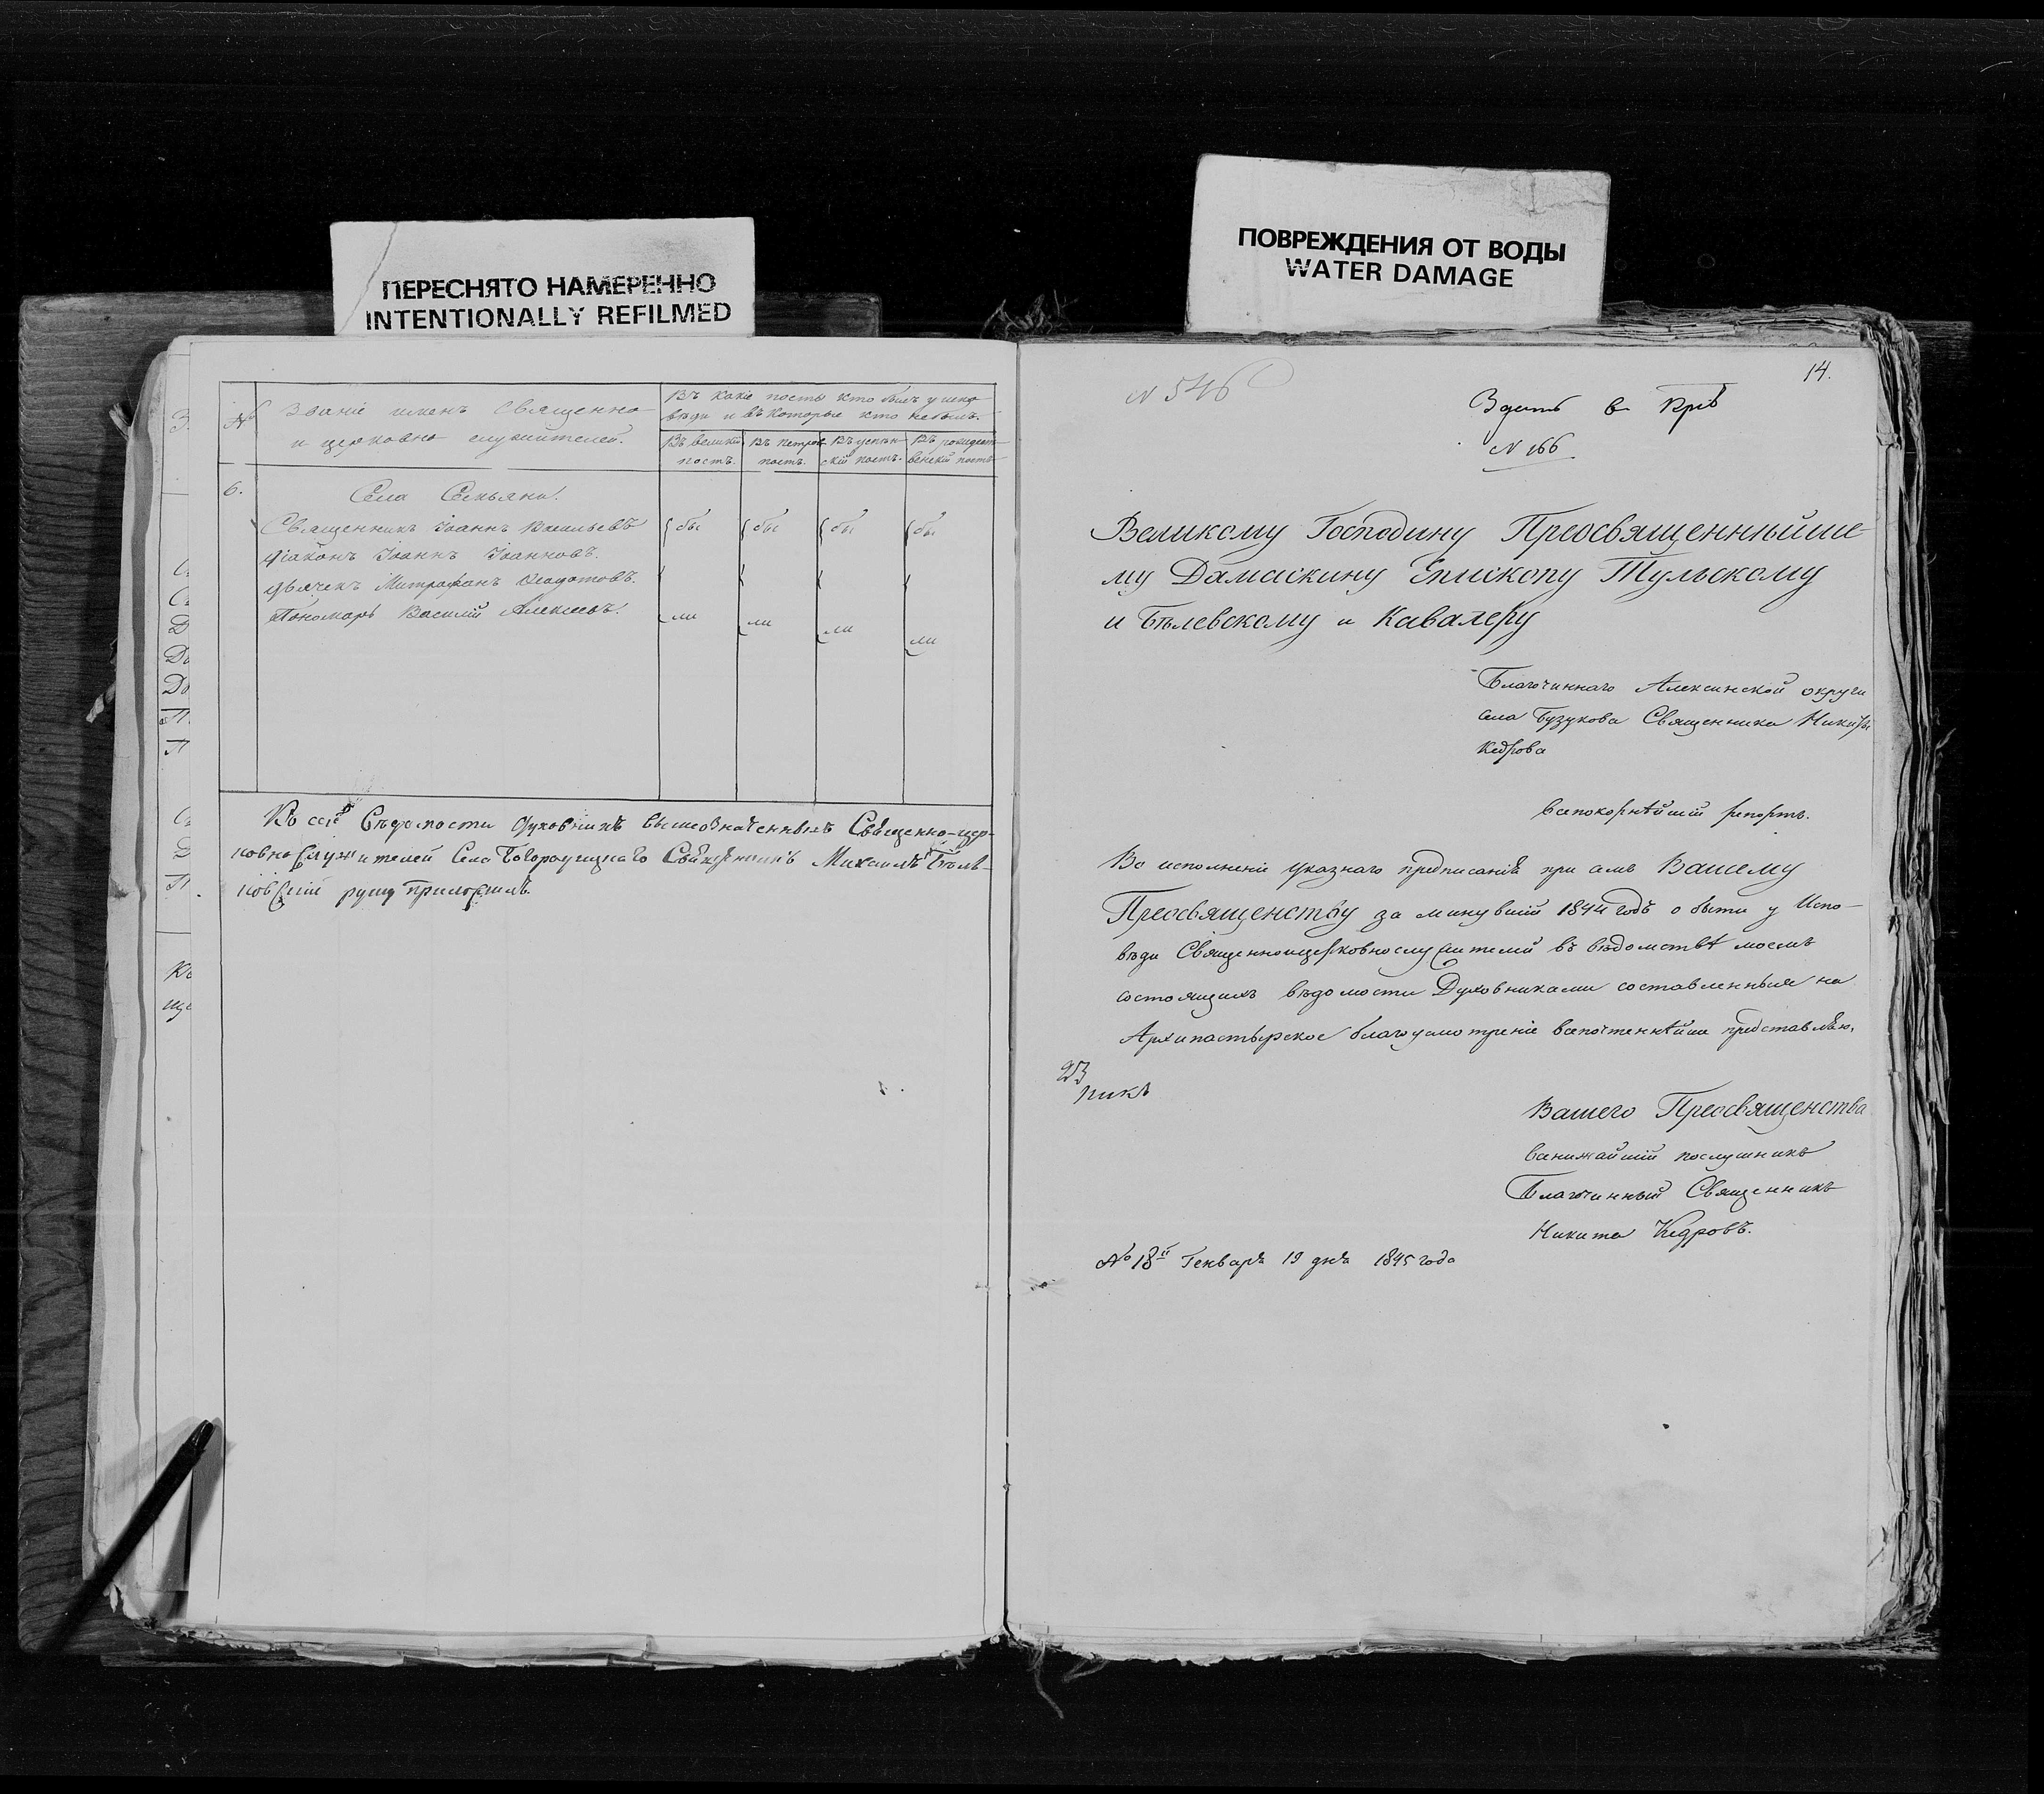 ПЕРЕСНЯТО НАМЕРЕННО
INTENTIONALLY REFILMED
ПОВРЕЖДЕНИЯ ОТ ВОДЫ
WATER DAMAGE
№
Званіе именъ Священно
и церковно служителей.
Въ какіе посты кто былъ у испо
вѣди и въ которые кто небылъ.
Въ великій
постъ.
Въ петров
постъ.
Въ успен
скій постъ.
Въ рождест
венскій постъ
6.
Села
Священникъ Іоаннъ Васильевъ
діаконъ Іоаннъ Іоанновъ.
дьячекъ Митрофанъ Ѳеодотовъ.
Пономарь Василій Алексѣевъ.
бы бы бы бы
ли ли ли ли
Ко сей Вѣдомости духовникъ вышеозначенныхъ Священно-цер-
ковно служителей Села Богородицкаго Священникъ Михаилъ
руку приложилъ.
14.
N 546
N 166
Великому Господину Преосвященнѣйше
му Дамаскину Епископу Тульскому
и Бѣлевскому и Кавалеру
Благочиннаго Алексинской округи
села Бузукова Священника Никиты
Кедрова
всепокорнѣйшій репортъ.
Во исполненіе указнаго предписанія при семъ Вашему
Преосвященству за минувшій 1844 годъ о бытіи у Испо-
вѣди Священноицерковнослужителей въ вѣдомствѣ моемъ
состоящихъ вѣдомости Духовниками составленныя на
Архипастырское благоусмотреніе всепочтеннѣйше представляю.
23
Вашего Преосвященства
всенижайшій послушникъ
Благочинный Священникъ
Никита Кедровъ.
№ 18й Генваря 19 дня 1845 года